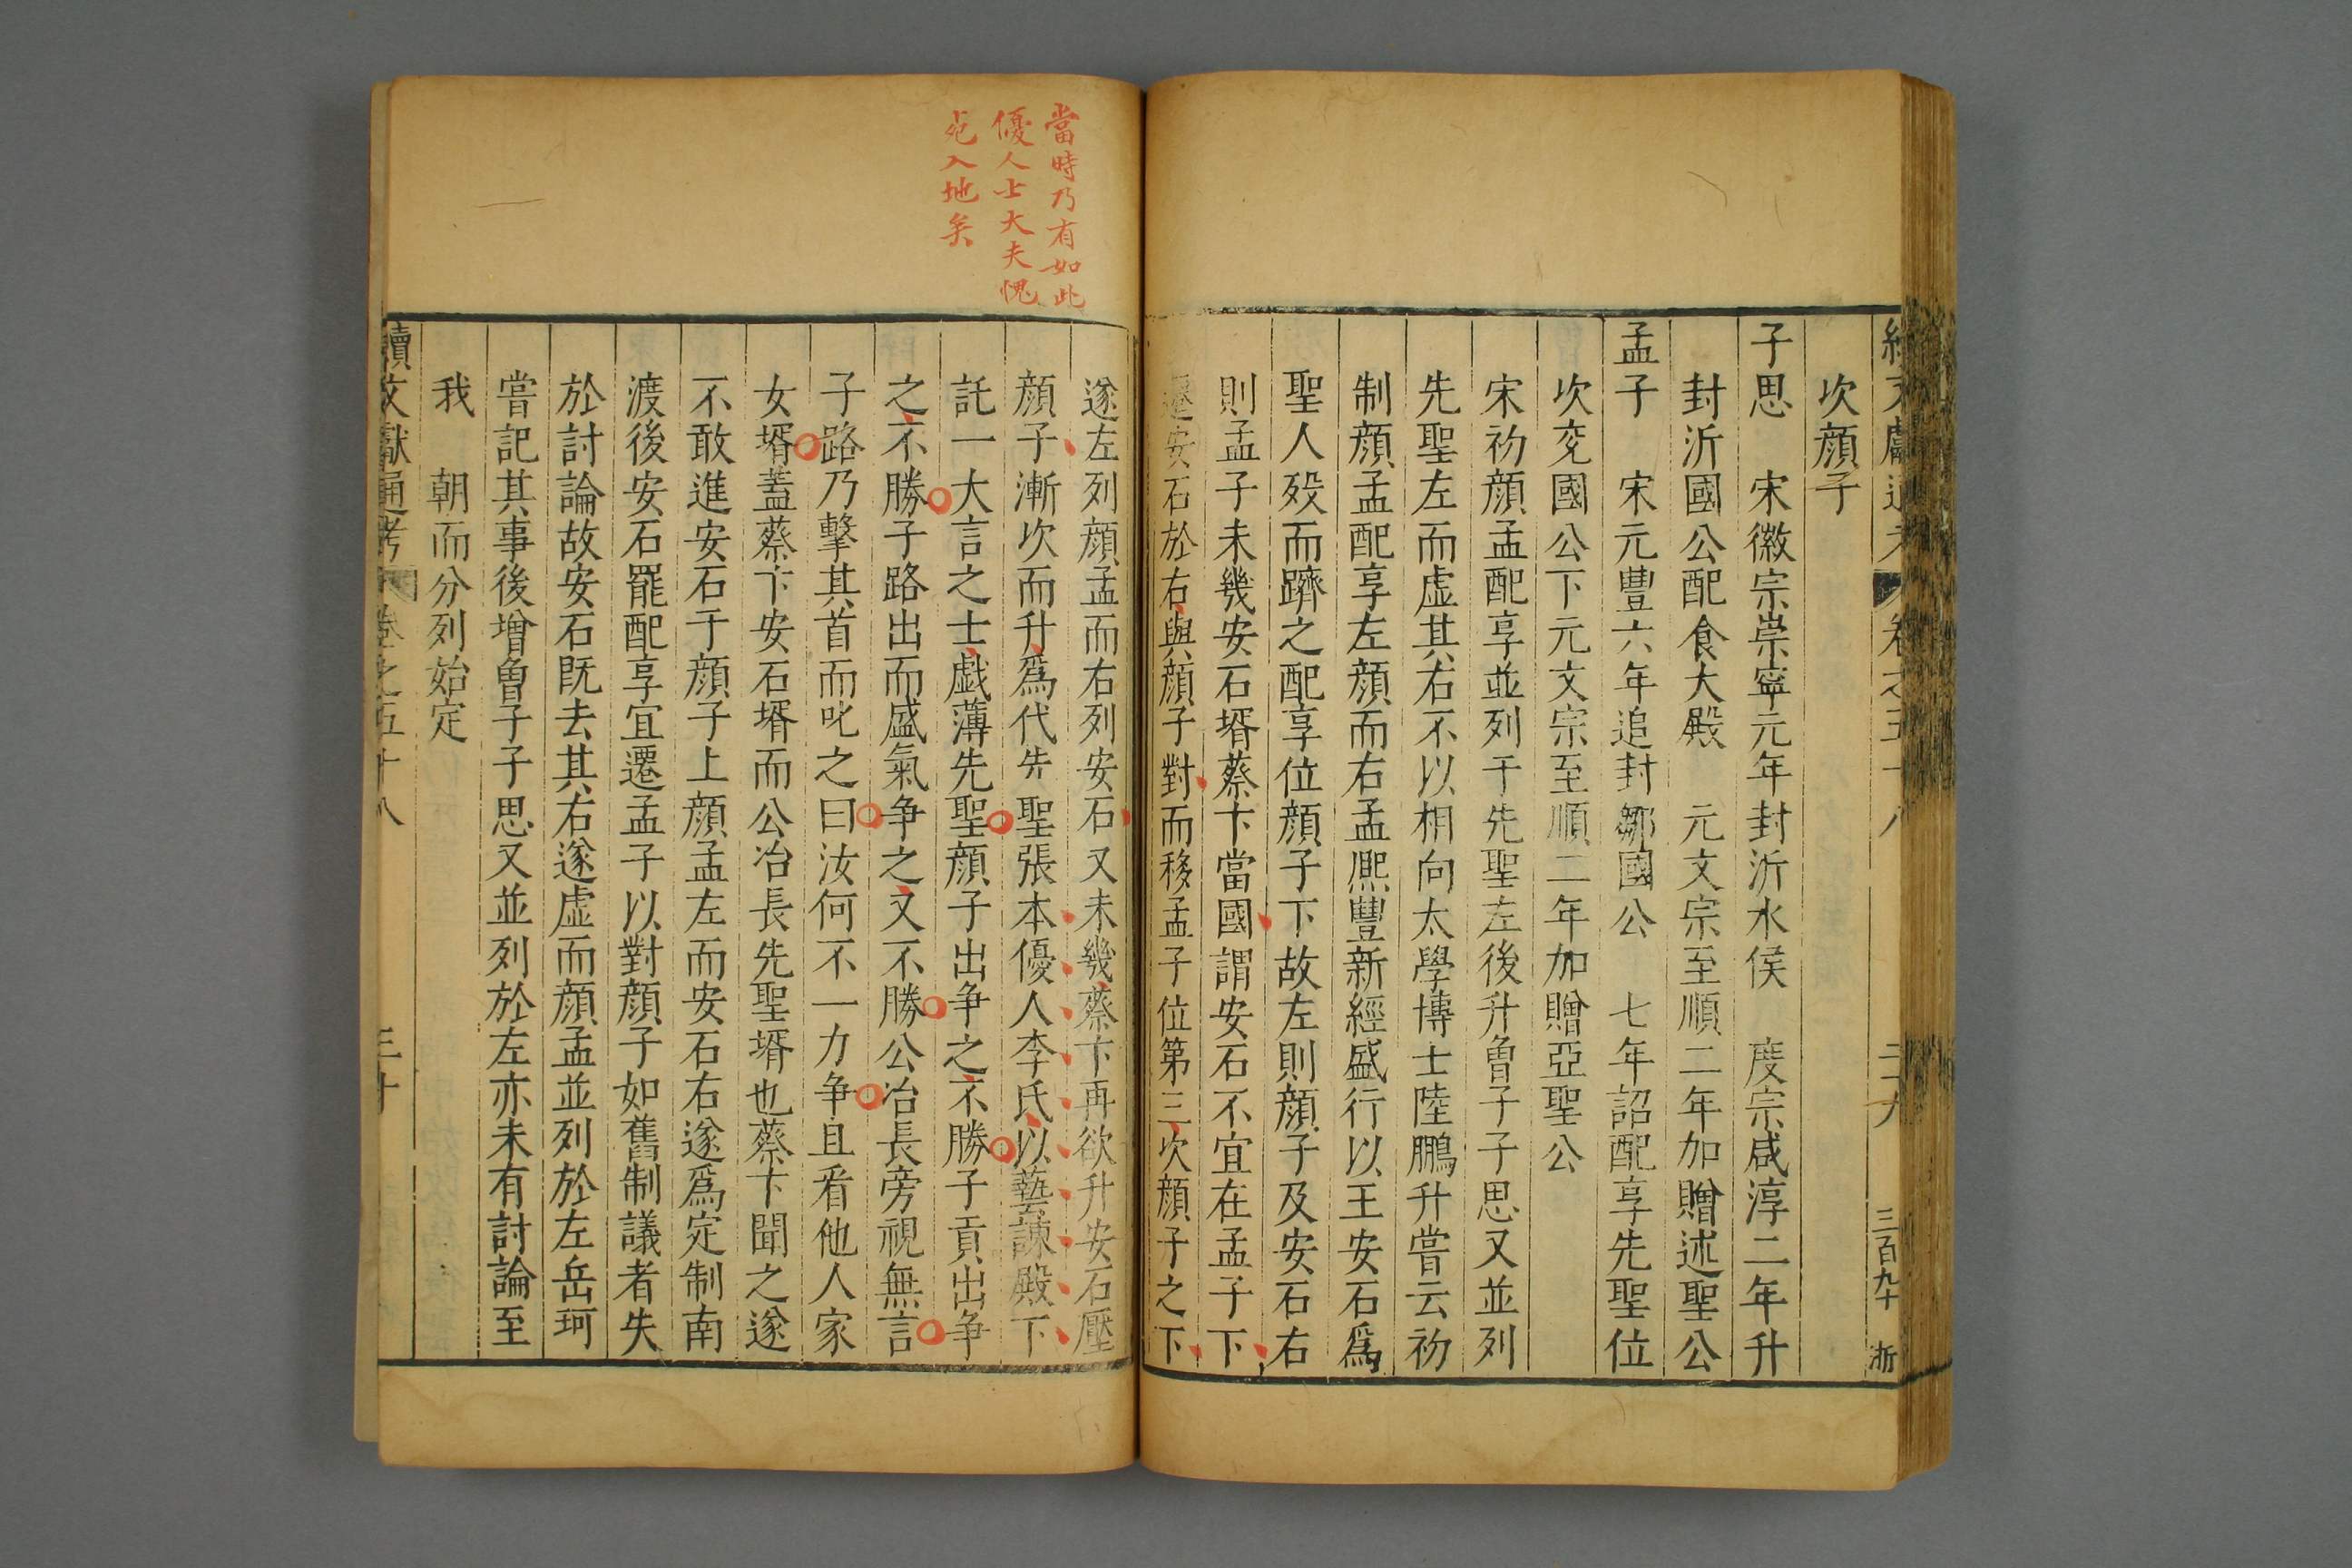 續文獻通考 卷之五十八 二十九 三百九十 浙
次顔子
子思 宋徽宗崇寧元年封沂水侯 度宗咸淳二年升
封沂國公配食大殿 元文宗至順二年加贈述聖公
孟子 宋元豐六年追封鄒國公 七年詔配享先聖位
次兗國公下元文宗至順二年加贈亞聖公
宋初顔孟配享並列于先聖左後升曾子子思又並列
先聖左而虛其右不以相向太學博士陸鵬升嘗云初
制顔孟配享左顔而右孟熈豐新經盛行以王安石爲
聖人歿而躋之配享位顔子下故左則顔子及安石右
則孟子未幾安石壻蔡卞當國謂安石不宜在孟子下
遷安石於右與顔子對而移孟子位第三次顔子之下
當時乃有如此
優人士大夫愧
死入地矣
遂左列顔孟而右列安石又未幾蔡卞再欲升安石壓
顔子漸次而升爲代先聖張本優人李氏以藝諫殿下
託一大言之士戯薄先聖顔子出争之不勝子貢出争
之不勝子路出而盛氣争之又不勝公冶長旁視無言
子路乃擊其首而叱之曰汝何不一力争且看他人家
女壻蓋蔡卞安石壻而公冶長先聖壻也蔡卞聞之遂
不敢進安石于顔子上顔孟左而安石右遂爲定制南
渡後安石罷配享宜遷孟子以對顔子如舊制議者失
於討論故安石既去其右遂虛而顔孟並列於左岳珂
嘗記其事後增曾子子思又並列於左亦未有討論至
我 朝而分列始定
續文獻通考 卷之五十八 三十